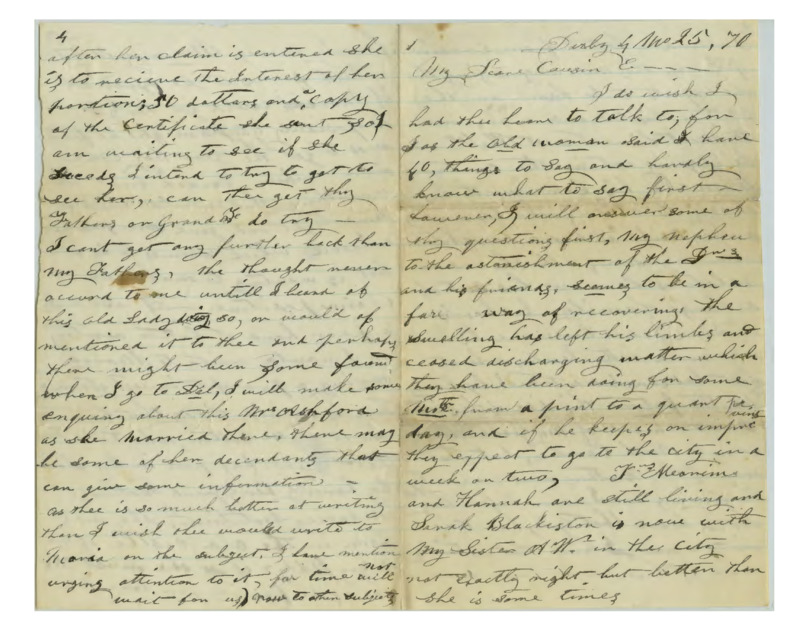 4
after her claim is entered she
is to recieve the Interest of her
portion, 50 dollars and a copy
of the Certificate she sent so I
am waiting to see if she
suceeds I intend to try to get to
see her, can thee get thy
Fathers or Grand Fs do try —
I cant get any further back than
my Fathers, the thought never
occurd to me untill I heard of
this old Lady doing so, or would of
mentioned it to thee and perhaps
there might been some found
when I go to Del, I will make some
enquiry about this Mrs Ashford
as she married there, there may
be some of her decendants that
can give some information —
as thee is so much better at writing
than I wish thee would write to
Maria on the subject, I have mention
urging attention to it, for time will not
wait for us) now to other subjects
1
Derby 4 Mo 25, 70
My Deare Cousin E — — —
I do wish I
had thee heare to talk to, for
I as the old woman said I have
40, things to say and hardly
know what to say first —
however, I will answer some of
thy questions first, My nephew
to the astonishment of the Drs
and his friends, seemes to be in a
fare way of recovering, the
swelling has left his limbs and
ceased discharging matter which
they have been doing for some
Mots, from a pint to a quart per
day, and if he keepes on improveing
they expect to go to the city in a
week or two,
and Hannah are still living and
Sarah Blackiston is now with
My Sister A W. in the City
not exactly right but better than
she is some times